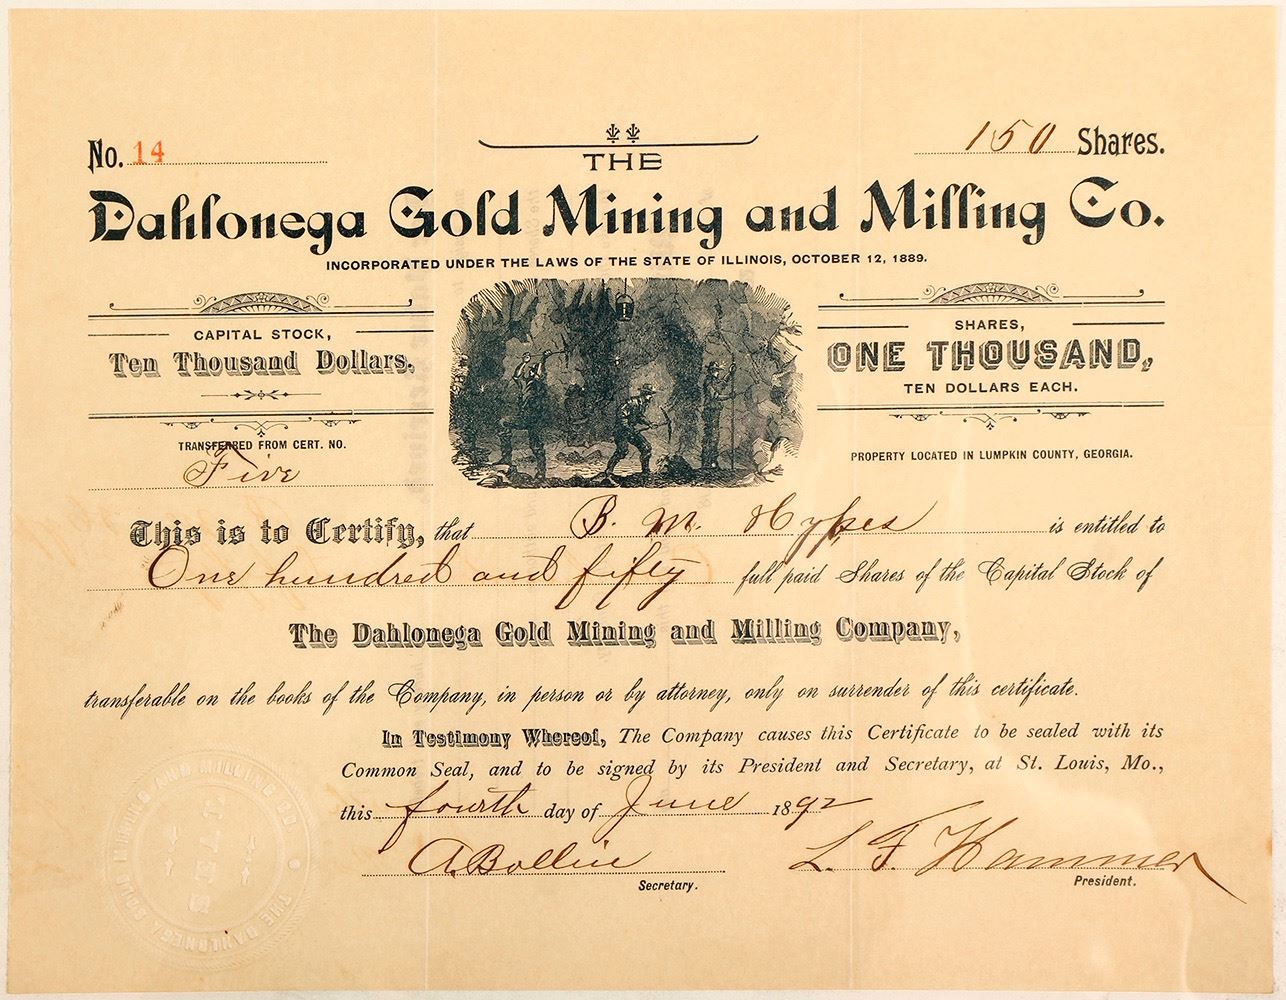 No. 14
150 Shares.
THE
Dahlonega Gold Mining and Milling Co.
INCORPORATED UNDER THE LAWS OF THE STATE OF ILLINOIS, OCTOBER 12, 1889.
CAPITAL STOCK,
Ten Thousand Dollars.
SHARES,
ONE THOUSAND,
TEN DOLLARS EACH.
TRANSFERRED FROM CERT. NO.
Five
PROPERTY LOCATED IN LUMPKIN COUNTY, GEORGIA.
This is to Certify, that B. M. Hypes is entitled to
One hundred and fifty full paid Shares of the Capital Stock of
The Dahlonega Gold Mining and Milling Company,
transferable on the books of the Company, in person or by attorney, only on surrender of this certificate.
In Testimony Whereof, The Company causes this Certificate to be sealed with its
Common Seal, and to be signed by its President and Secretary, at St. Louis, Mo.,
this fourth day of June 1892
A. Bollin L. F. Hammer
Secretary. President.
THE DAHLONEGA GOLD MINING AND MILLING CO.